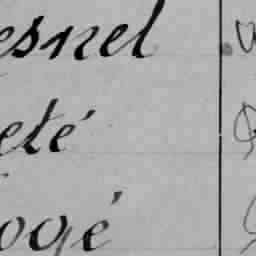 esnel
eté
ogé